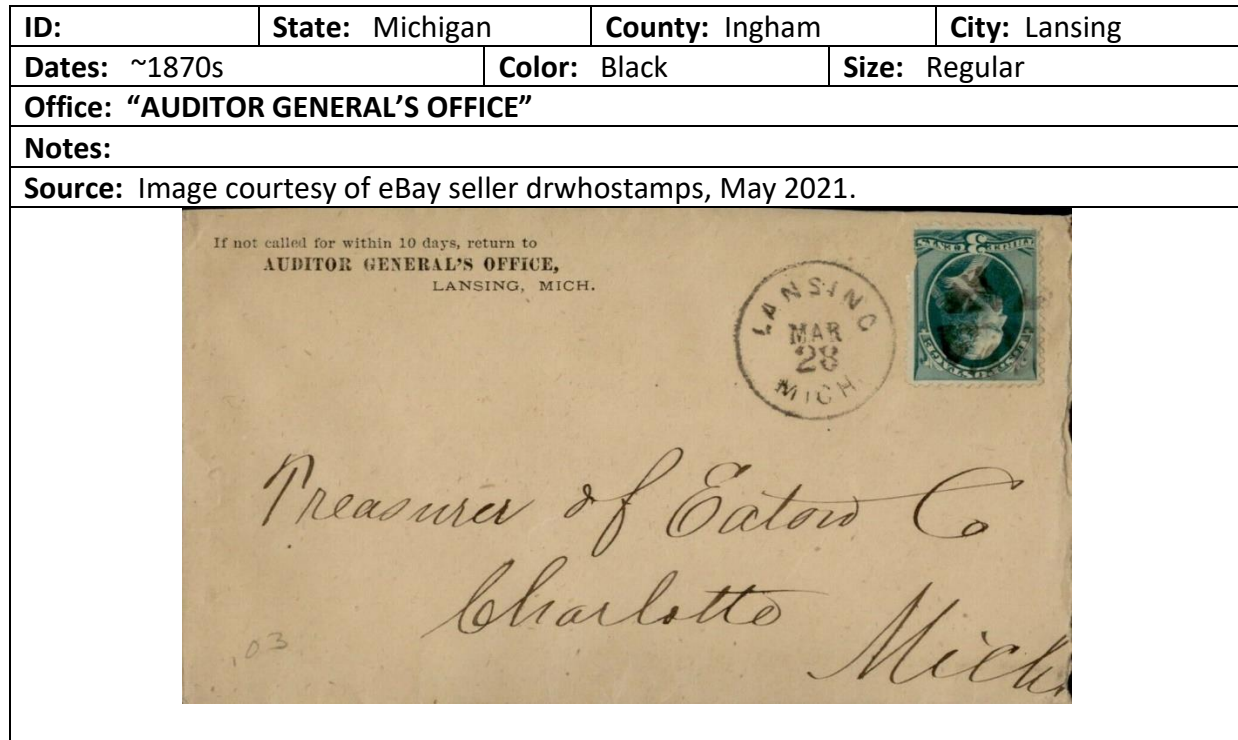 ID: State: Michigan County: Ingham City: Lansing
Dates: ~1870s Color: Black Size: Regular
Office: “AUDITOR GENERAL’S OFFICE”
Notes:
Source: Image courtesy of eBay seller drwhostamps, May 2021.
If not called for within 10 days, return to
AUDITOR GENERAL’S OFFICE,
LANSING, MICH.
LANSING
MAR
28
MICH.
3
Treasurer of Eaton Co
Charlotte
Mich.
.03